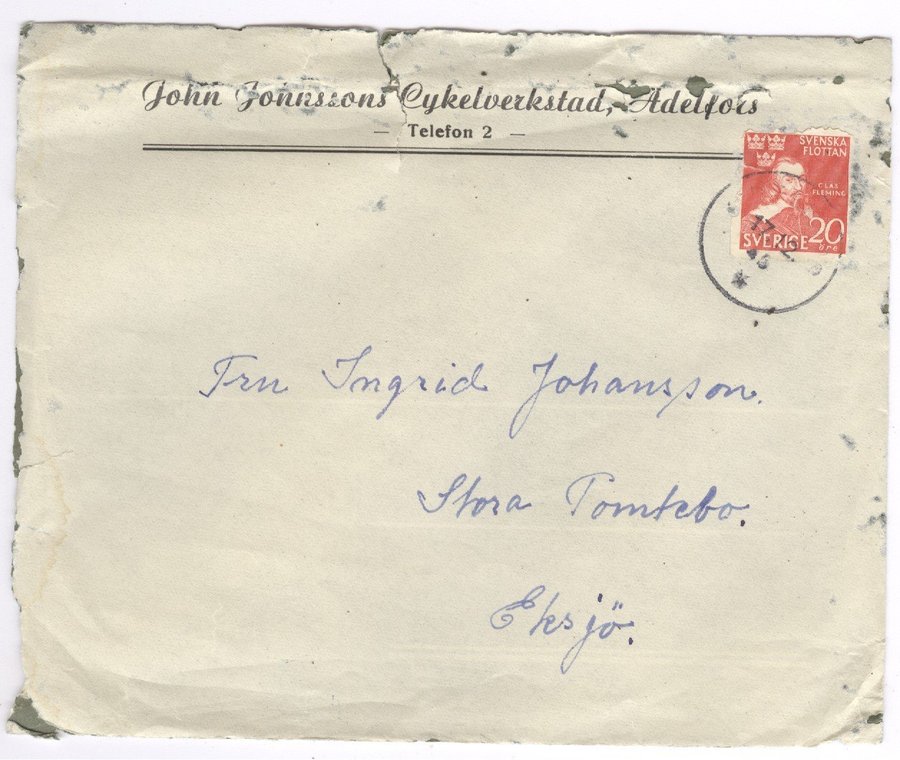 John Jonnssons Cykelverkstad, Adelfors
— Telefon 2 —
SVENSKA
FLOTTAN
CLAS
FLEMING
SVERIGE 20
öre
17 12
Fru Ingrid Johansson.
Stora Tomtebo.
Eksjö.